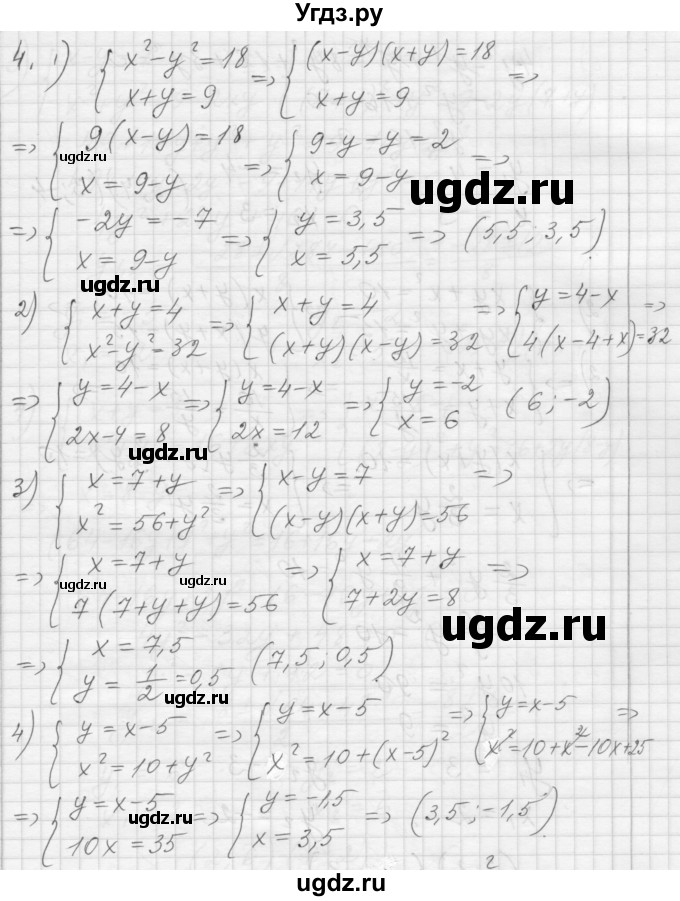 Угдз.ру
4. 1) { x² – y² = 18 ; x + y = 9 => { (x – y)(x + y) = 18 ; x + y = 9 =>
=> { 9(x – y) = 18 ; x = 9 – y => { 9 – y – y = 2 ; x = 9 – y =>
ugdz.ru
ugdz.ru
=> { –2y = –7 ; x = 9 – y => { y = 3,5 ; x = 5,5 => (5,5 ; 3,5)
ugdz.ru
2) { x + y = 4 ; x² – y² = 32 => { x + y = 4 ; (x + y)(x – y) = 32 => { y = 4 – x ; 4(x – 4 + x) = 32 =>
=> { y = 4 – x ; 2x – 4 = 8 => { y = 4 – x ; 2x = 12 => { y = –2 ; x = 6 (6 ; –2)
ugdz.ru
3) { x = 7 + y ; x² = 56 + y² => { x – y = 7 ; (x – y)(x + y) = 56 =>
=> { x = 7 + y ; 7(7 + y + y) = 56 => { x = 7 + y ; 7 + 2y = 8 =>
ugdz.ru ugdz.ru
ugdz.ru
=> { x = 7,5 ; y = 1/2 = 0,5 (7,5 ; 0,5)
ugdz.ru
4) { y = x – 5 ; x² = 10 + y² => { y = x – 5 ; x² = 10 + (x – 5)² => { y = x – 5 ; x² = 10 + x² – 10x + 25 =>
=> { y = x – 5 ; 10x = 35 => { y = –1,5 ; x = 3,5 => (3,5 ; –1,5)
ugdz.ru
ugdz.ru
ugdz.ru